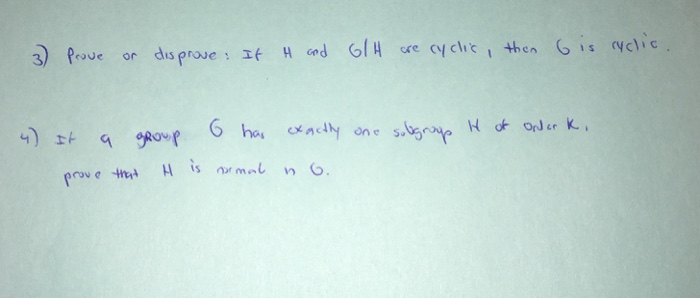 3) Prove or disprove: If H and G/H are cyclic, then G is cyclic.
4) If a group G has exactly one subgroup H of order K,
prove that H is normal in G.